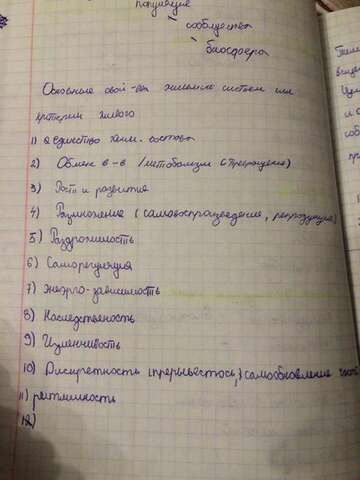 популяция
сообщества
биосфера
Основные свой-ва живых систем или
критерии живого
1) единство хим. состава
2) Обмен в-в /метаболизм (превращение)
3) Рост и развитие
4) Размножение (самовоспроизведение, репродукция)
5) Раздрожимость
6) Саморегуляция
7) Энерго-зависимость
8) Наследственость
9) Изменчивость
10) Дискретность (прерывестось) самообновление
11) ритмикость
12)